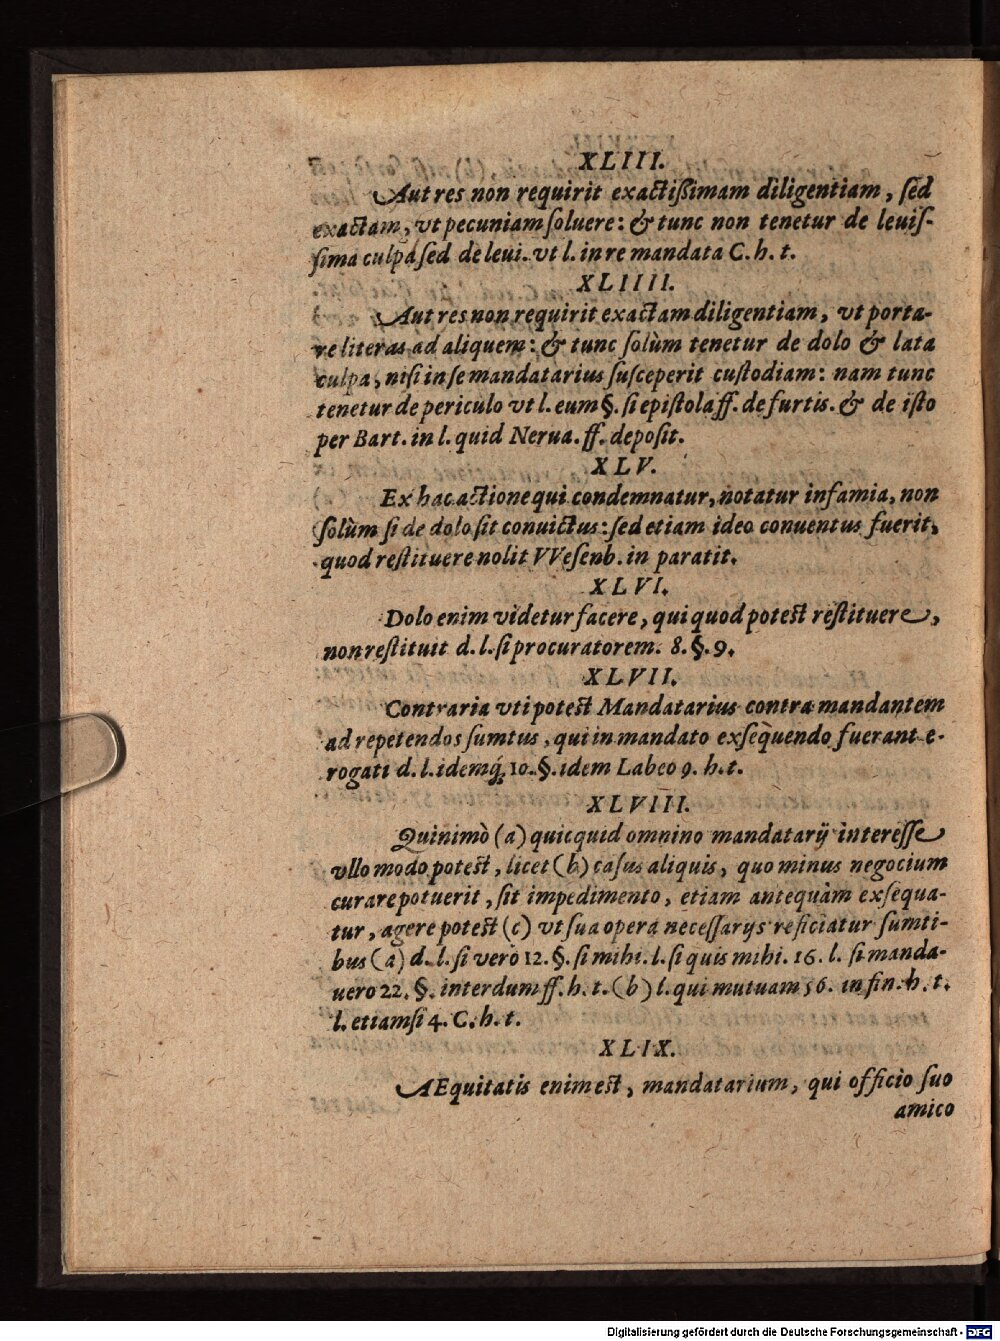 XLIII.
Aut res non requirit exactißimam diligentiam, ſed
exactam, vt pecuniam ſoluere: & tunc non tenetur de leuiſ-
ſima culpa ſed de leui. vt l. in re mandata C. h. t.
XLIIII.
Aut res non requirit exactam diligentiam, vt porta-
re literas ad aliquem: & tunc ſolùm tenetur de dolo & lata
culpa, niſi in ſe mandatarius ſuſceperit cuſtodiam: nam tunc
tenetur de periculo vt l. eum §. ſi epiſtola ff. de furtis. & de iſto
per Bart. in l. quid Nerua. ff. depoſit.
XLV.
Ex hac actione qui condemnatur, notatur infamia, non
ſolùm ſi de dolo ſit conuictus: ſed etiam ideo conuentus fuerit,
quod reſtituere nolit VVeſenb. in paratit.
XLVI.
Dolo enim videtur facere, qui quod poteſt reſtituere,
non reſtituit d. l. ſi procuratorem. 8. §. 9.
XLVII.
Contraria vti poteſt Mandatarius contra mandantem
ad repetendos ſumtus, qui in mandato exſequendo fuerant e-
rogati d. l. idemq́. 10. §. idem Labeo 9. h. t.
XLVIII.
Quinimò (a) quicquid omnino mandatarij intereſſe
vllo modo poteſt, licet (b) caſus aliquis, quo minus negocium
curare potuerit, ſit impedimento, etiam antequàm exſequa-
tur, agere poteſt (c) vt ſua opera neceſſarijs reficiatur ſumti-
bus (a) d. l. ſi verò 12. §. ſi mihi. l. ſi quis mihi. 16. l. ſi manda-
uero 22. §. interdum ff. h. t. (b) l. qui mutuam 56. in fin. h. t.
l. etiamſi 4. C. h. t.
XLIX.
AEquitatis enim eſt, mandatarium, qui officio ſuo
amico
Digitalisierung gefördert durch die Deutsche Forschungsgemeinschaft - DFG